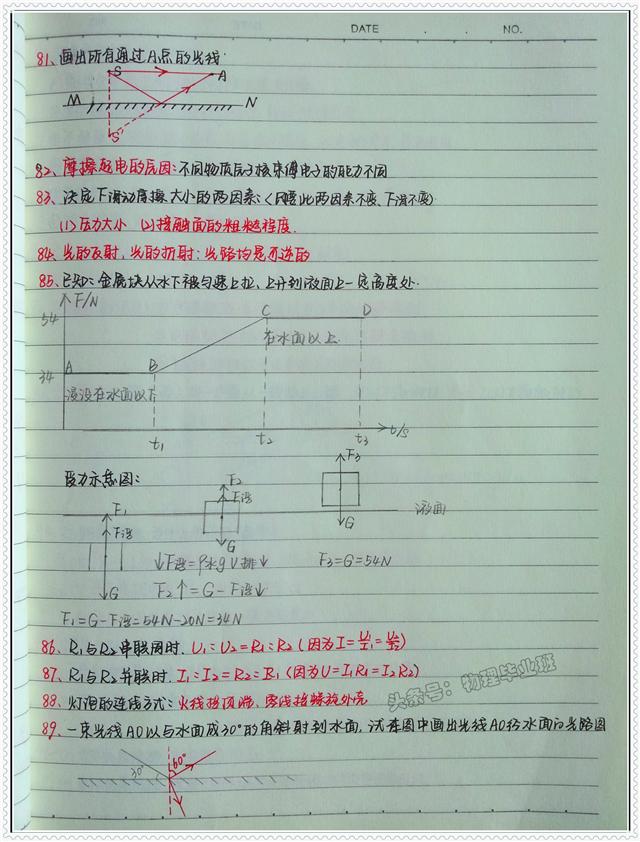 DATE . . NO.
81、画出所有通过A点的光线.
S A
M N
S'
82、摩擦起电的原因:不同物质原子核束缚电子的能力不同
83、决定下滑动摩擦大小的两因素:(只要此两因素不变、下滑不变)
(1)压力大小 (2)接触面的粗糙程度.
84、光的反射,光的折射:光路均是可逆的
85、已知:金属块从水下被匀速上拉,上升到液面上一定高度处.
F/N
54 C D
在水面以上
34 A B
浸没在水面以下
t1 t2 t3 t/s
受力示意图:
F1 F2 F3
F浮 F浮
液面
G G G
↓F浮=ρ水gV排↓ F3=G=54N
F2↑=G-F浮↓
F1=G-F浮=54N-20N=34N
86、R1与R2串联同时.U1:U2=R1:R2(因为I=U1/I1=U2/I2)
87、R1与R2并联时.I1:I2=R2:R1(因为U=I1R1=I2R2)
88、灯泡的连线方式:火线接顶端、零线接螺旋外壳
89、一束光线AO以与水面成30°的角斜射到水面,试在图中画出光线AO经水面的光路图
30° 60°
头条号:物理毕业班